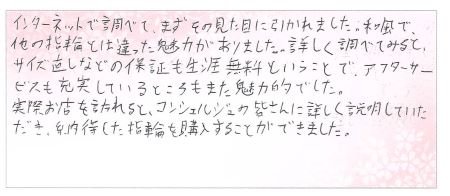 インターネットで調べて、まずその見た目に引かれました。和風で、
他の指輪とは違った魅力がありました。詳しく調べてみると、
サイズ直しなどの保証も生涯無料ということで、アフターサー
ビスも充実しているところもまた魅力的でした。
実際お店を訪れると、コンシェルジュの皆さんに詳しく説明していた
だき、納得した指輪を購入することができました。